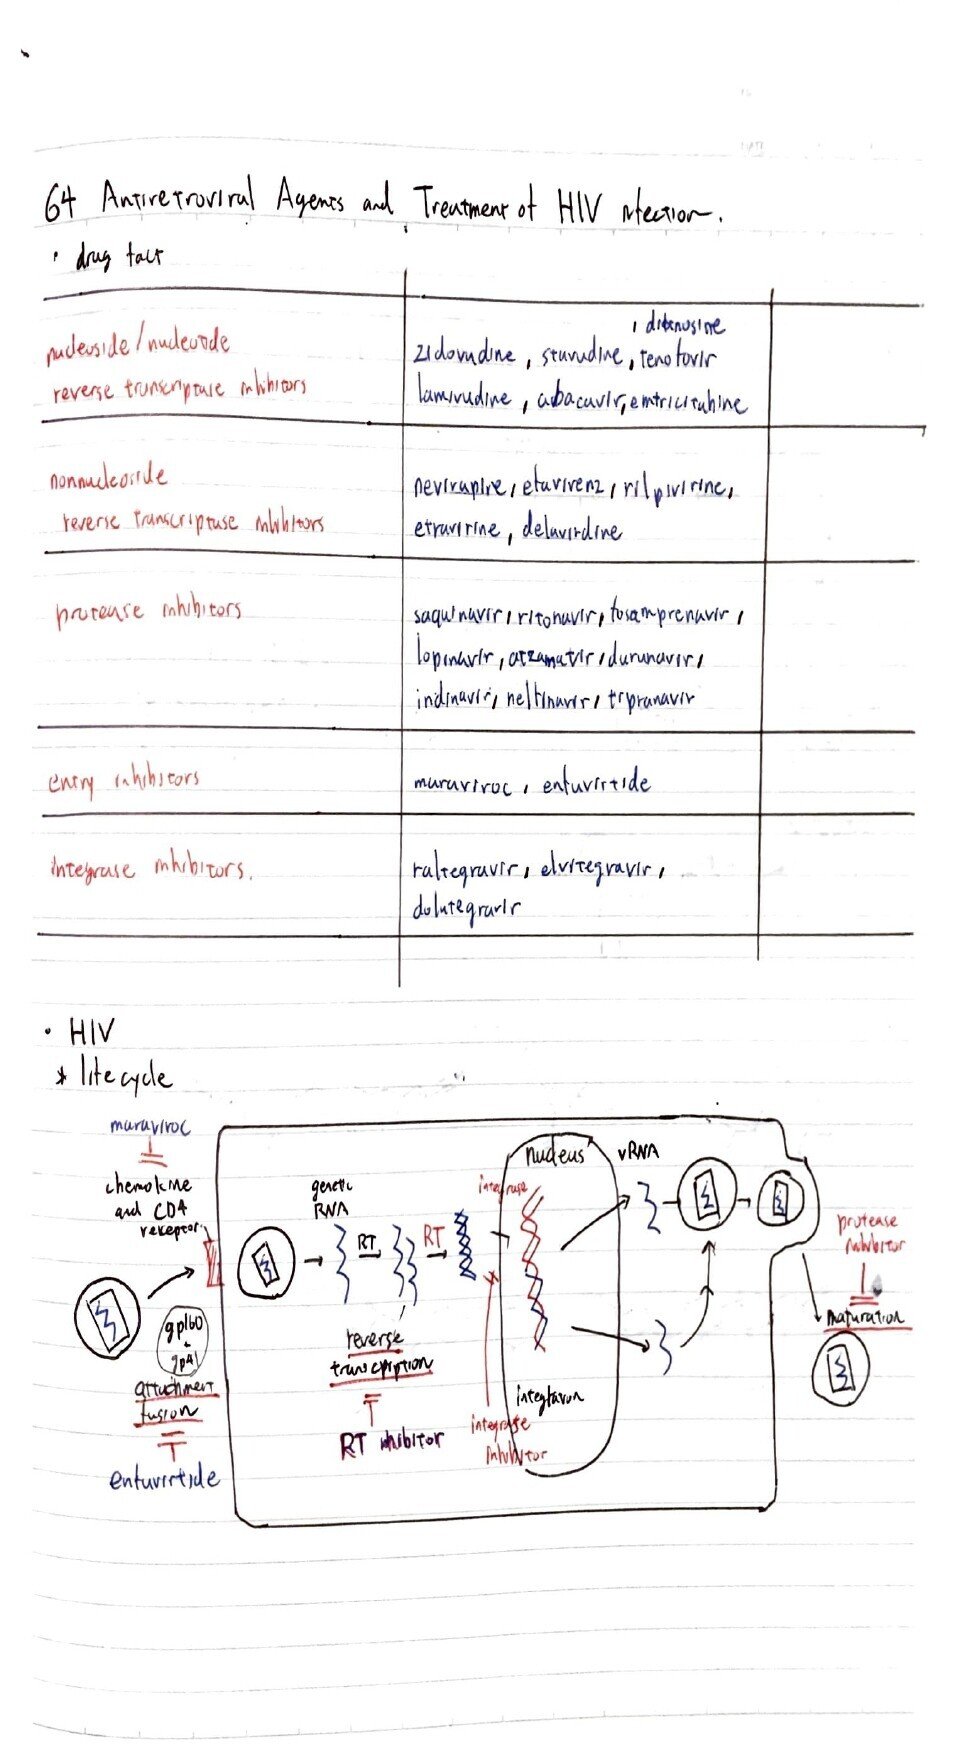 64 Antiretroviral Agents and Treatment of HIV infection.
• drug fact
nucleoside/nucleotide
reverse transcriptase inhibitors
, didanosine
zidovudine, stavudine, tenofovir
lamivudine, abacavir, emtricitabine
nonnucleoside
reverse transcriptase inhibitors
nevirapine, efavirenz, rilpivirine,
etravirine, delavirdine
protease inhibitors
saquinavir, ritonavir, fosamprenavir,
lopinavir, atzanavir, darunavir,
indinavir, nelfinavir, tipranavir
entry inhibitors
maraviroc, enfuvirtide
integrase inhibitors.
raltegravir, elvitegravir,
dolutegravir
• HIV
* life cycle
maraviroc
chemokine
and CD4
receptor
gp160
gp41
attachment
fusion
enfuvirtide
genetic
RNA
RT
RT
reverse
transcription
RT inhibitor
integrase
nucleus
integration
integrase
inhibitor
vRNA
protease
inhibitor
maturation